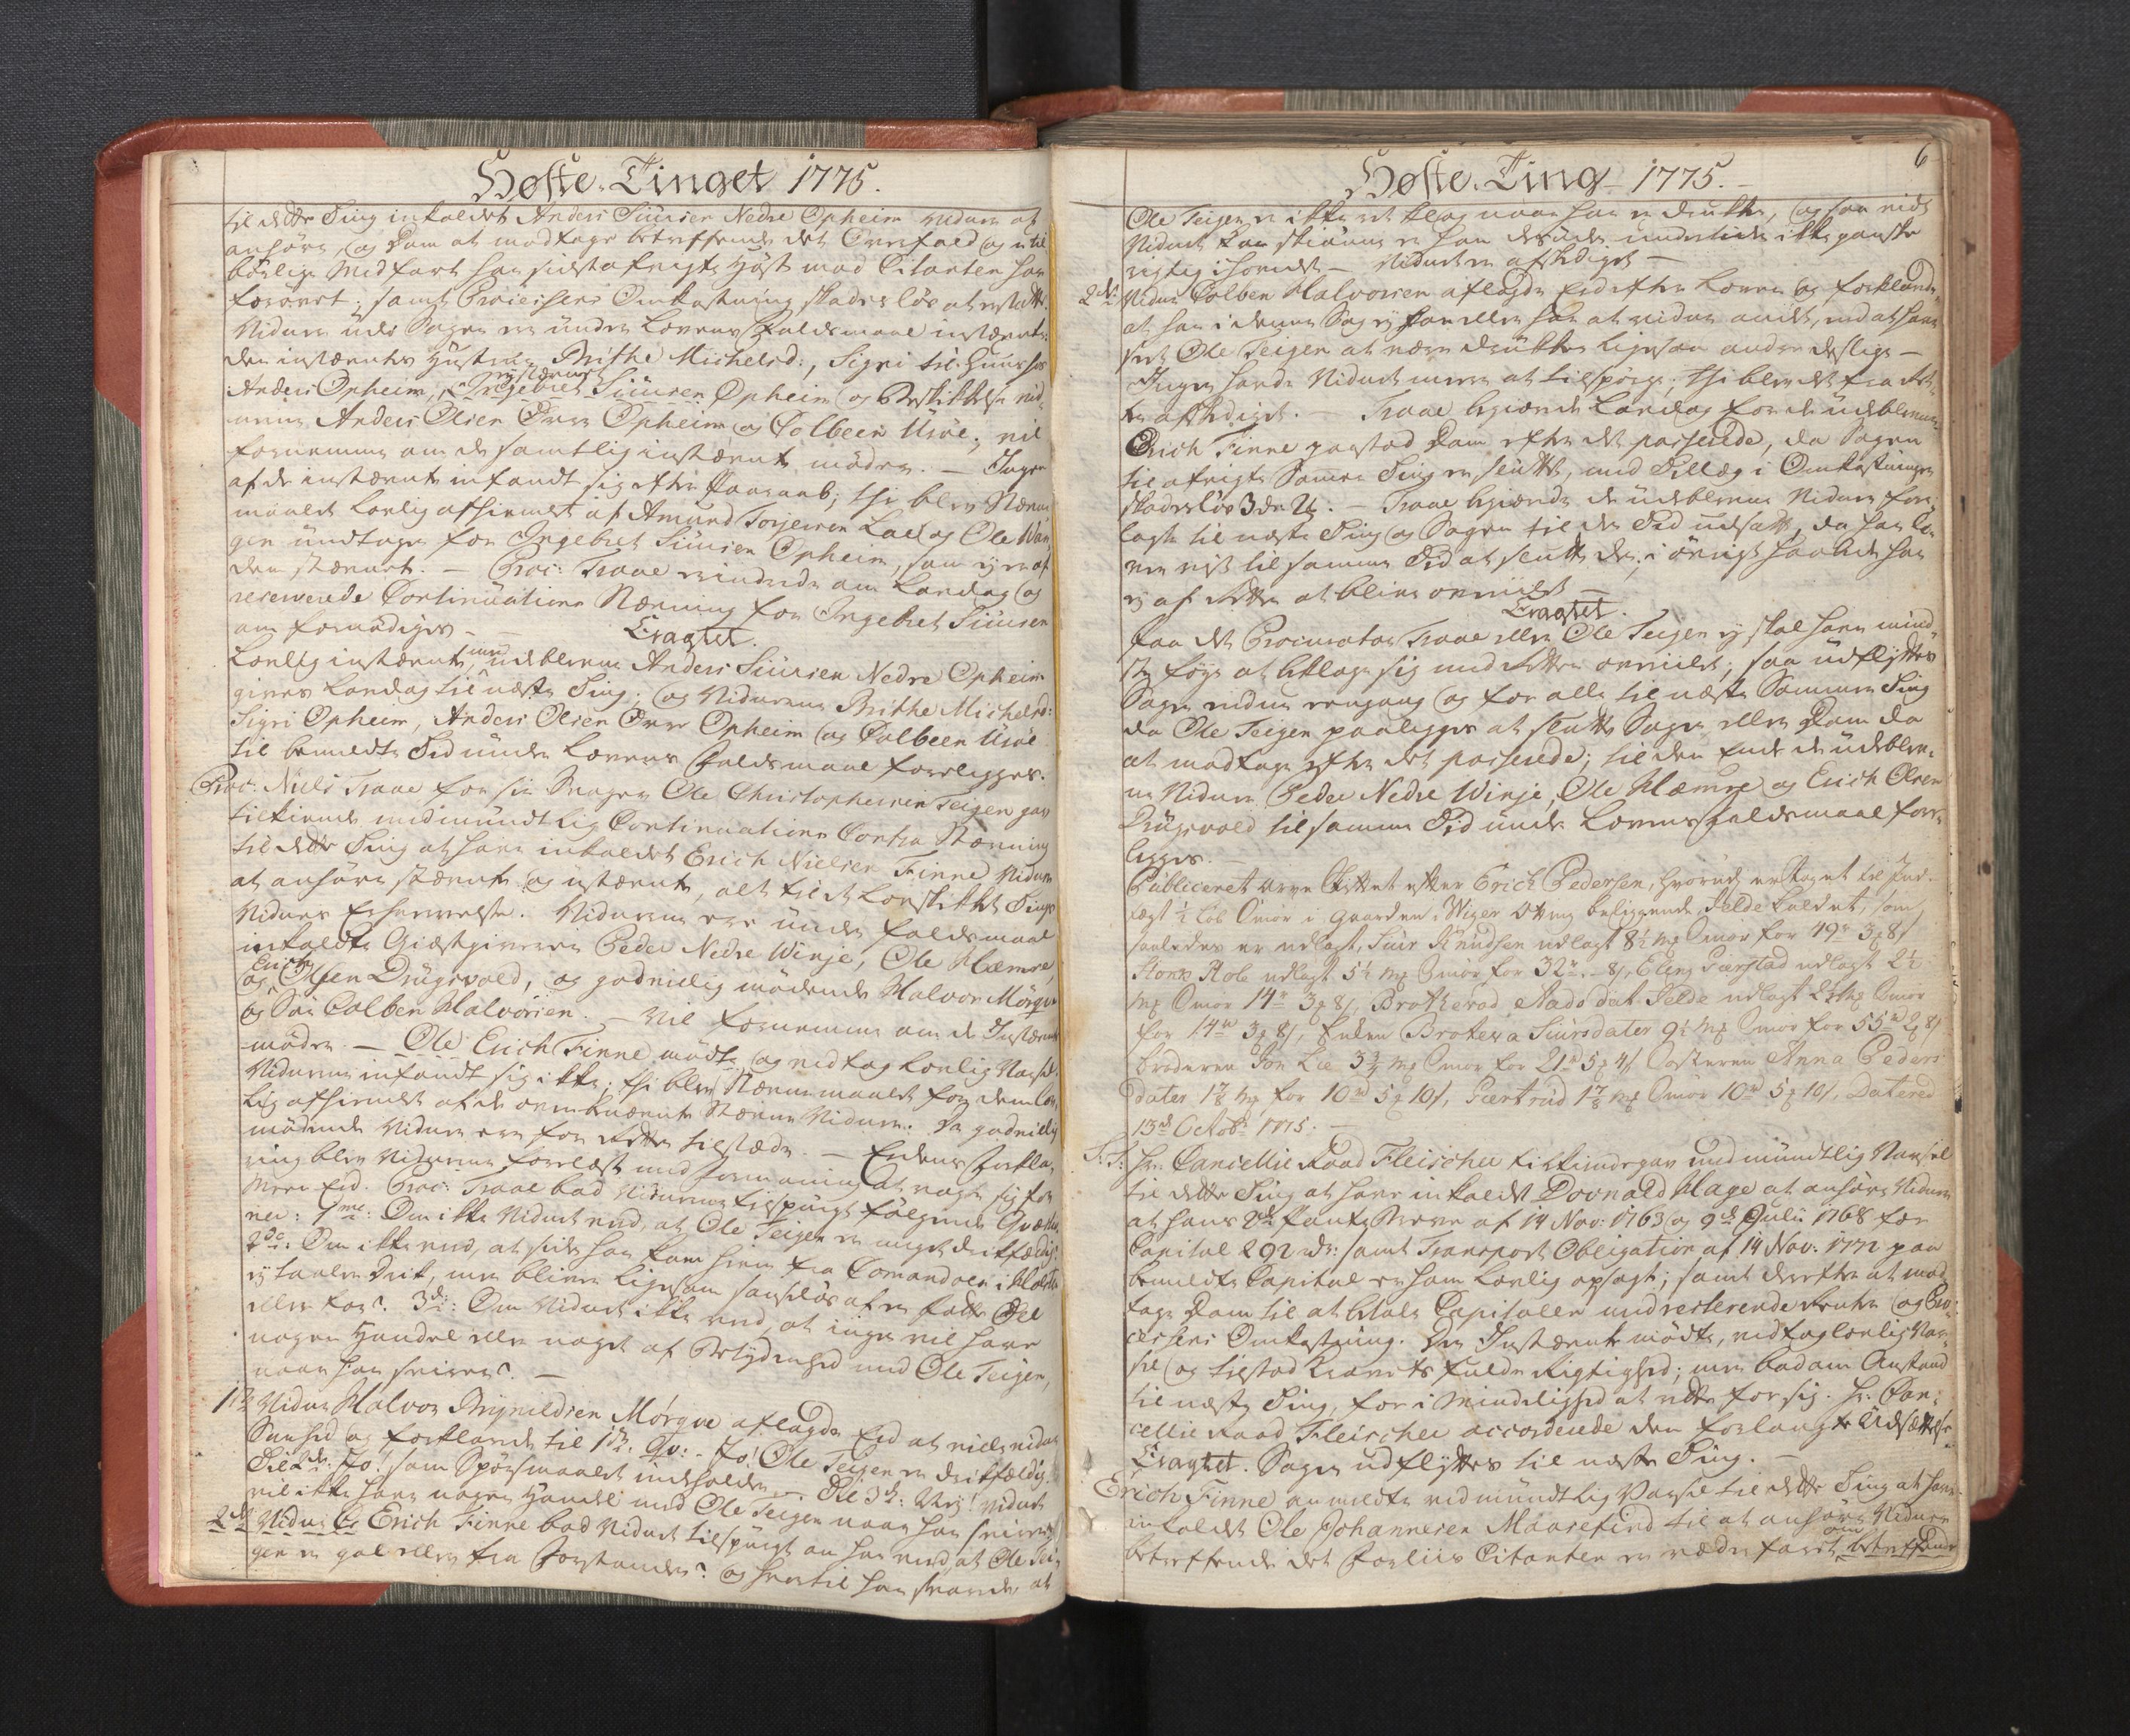 Høste-Tinget 1775.
til dette Ting indkaldet Anders Siursen Nedre Opheim Vidner at
anhøre, og Dom at modtage betreffende det Overfald og util
børlige Medfart han sidstafvigte Høst mod Citanten har
forøvet; samt Processens Omkostning skadesløs at erstatte.
Vidner udi Sagen ere under Lovens Faldsmaal instævnte:
den instævntes Hustrue Brithe Michelsd:, Sigri til Huuse hos
Anders Opheim, Ingebret Siursen Opheim og Beskikkelses Vid-
nerne Anders Olsen Øvre Opheim og Colbeen Ursøe; vil
fornemme om de samtlig instævnte møder. — Ingen
af de instævnte indfandt sig efter Paaraab; thi blev Stævne
maalet lovlig afhiemlet af Amund Torjersen Lael og Ole Win
gen undtagen for Ingebret Siursen Opheim, som ey er af
dem stævnet. — Proc: Traae erindrede om Laudag og
reserverede Continuations Stævning for Ingebret Siursen
om fornødiges. —
Eragtet.
Lovlig instævnte men udeblevne Anders Siursen Nedre Opheim
gives Laudag til næste Ting; og Vidnerne Brithe Michelsd:
Sigri Opheim, Anders Olsen Øvre Opheim og Colbeen Ursøe
til bemeldte Tid under Lovens Faldsmaal forelegges.
Proc: Niels Traae for sin Principal Ole Christophersen Teigen gav
tilkiende med mundtlig Continuations Contra Stævning
til dette Ting at have indkaldet Erich Nielsen Finne Vidner
at anhøre stævnte og ustævnte, alt til et Lovskikket Tings
Vidnes Erhvervelse. Vidnerne ere under Faldsmaal
indkaldte Giæstgiveren Peder Nedre Winje, Ole Klemme,
og Erich Olsen Drugsvold, og godvillig mødende Halvor Mørqve
og Søn Colben Halvorsen. — Vil fornemme om de Instævnte
møder. — Ole Erich Finne mødte og vedtog lovlig Varsel.
Vidnerne indfandt sig ikke; thi blev Stævnemaalet for dem lov-
lig afhiemlet af de ovenbenævnte Stævne Vidner. De godvillig
mødende Vidner ere for Retten tilstæde. — Eedens Forklaring
blev Vidnerne forelæst med Formaning at vogte sig for
Meen Eed. Proc: Traae bad Vidnerne tilspurgt følgende Qvæstio-
ner: 1me: Om ikke Vidnet veed, at Ole Teigen er meget drikfældig?
2do: Om ikke veed, at siden han kom hiem fra Comandoen i Holsten
ey taaler Drik, men bliver ligesom sandseløs af en Potte Øl
eller too? 3die: Om Vidnet ikke veed, at ingen vil have
nogen Handel eller noget af Betydenhed med Ole Teigen,
naar han sviirer? —
1te Vidne Halvor Brynildsen Mørqve aflagde Eed at ville vidne
Sandhed og forklarede til 1ste Qv: – Jo! Ole Teigen er drikfældig,
Til 2de: Jo! som Spørsmaalet indholder —. Til 3de: Nej! Vidnet
vil ikke have nogen Handel med Ole Teigen naar han sviirer
2det Vidne Er Erich Finne bad Vidnet tilspurgt om han veed, at Ole Tei-
gen er gal eller fra Forstanden? og hvortil han svarede at
Høste-Ting 1775.
6
Ole Teigen er ikke ret klog naar han er drukken, og saa vidt
Vidnet kan skiønne er han desuden undertiden ikke ganske
rigtig i Hovedet — Vidnet er afskediget —
2det Vidne Colben Halvorsen aflagde Eed efter Loven og forklarede
at han i denne Sag ey har eller har at vidne andet, end at have
seet Ole Teigen at være drukken ligesom andre deslige —
Ingen havde Vidnet mere at tilspørge; thi blev det fra Ret-
ten afskediget. — Traae begiærede Laudag for de udeblevne
Erich Finne paastod Dom efter det passerede, da Sagen
til afvigte Sommer Ting er sluttet, med Tillæg i Omkostninger
skadesløs 3 Rdr. — Traae begiærede de udeblevne Vidner fore
lagt til næste Ting og Sagen til den Tid udsatt, da han lo-
ver vist til samme Tid at slutte den; i øvrigt haabede han
ey af Retten at blive overiilet —
Eragtet.
Paa det Procurator Traae eller Ole Teigen ey skal have mind-
ste Føye at beklage sig ved Retten overiilet; saa udflyttes
Sagen endnu eengang og for alle til næste Sommer Ting
da Ole Teigen paalegges at slutte Sagen eller Dom da
at modtage efter det passerede; til den Ende de udeblev-
ne Vidner Peder Nedre Winje, Ole Klemme og Erich Olsen
Drugsvold til samme Tid under Lovens Faldsmaal fore-
legges.—
Publiceret Arve Skiftet efter Erich Pedersen, hvorud er taget til Ind-
lægt ½ Løb Smør i Gaarden Wiger Otting beliggende Selde kaldet, som
saaledes er udlagt, Siur Knudsen udlagt 8½ mk Smør for 49 rd 3 8 s
Storck Hole udlagt 5½ mk Smør for 32 rd – 8 s, Eleng Gierstad udlagt 2½
mk Smør 14 rd 3 8 s, Brotherød Aadsdat: Selde udlagt 2½ mk Smør
for 14 rd 3 8 s, Enken Broteva Siursdater 9½ mk Smør for 55 rd 2 8 s
Broderen Jon Lie 3¾ mk Smør for 21 rd 5 4 s Søsteren Anna Peders
dater 1⅞ mk for 10 rd 5 10 s, Giertrud 1⅞ mk Smør 10 rd 5 10 s, Datered
13de Octobr 1775. —
S:T: Hr. Cancellie Raad Fleischer tilkiendegav ved mundtlig Varsel
til dette Ting at have indkaldt Dovnald Hage at anhøre Vidner
at hans 2de Pante Breve af 14 Nov: 1763 og 9de Julii 1768 for
Capital 292 rdr: samt Transport Obligation af 14 Nov: 1772 paa
bemeldte Capital er ham lovlig opsagt; samt derefter at mod-
tage Dom til at betale Capitalen med resterende Renter og Pro-
cessens Omkostning. Den Instævnte mødte, vedtog lovlig Var-
sel og tilstod Kravets fulde Rigtighed; men bad om Anstand
til næste Ting, for i Mindelighed at rette for sig. Hr. Can-
cellie Raad Fleischer accorderede den forlangte Udsættelse
Eragtet. Sagen udflyttes til næste Ting. —
Erich Finne anmeldte ved mundtlig Varsel til dette Ting at have
indkaldet Ole Johannesen Maarefind til at anhøre Vidner
betreffende det Forliis Citanten er vederfaret om betreffende